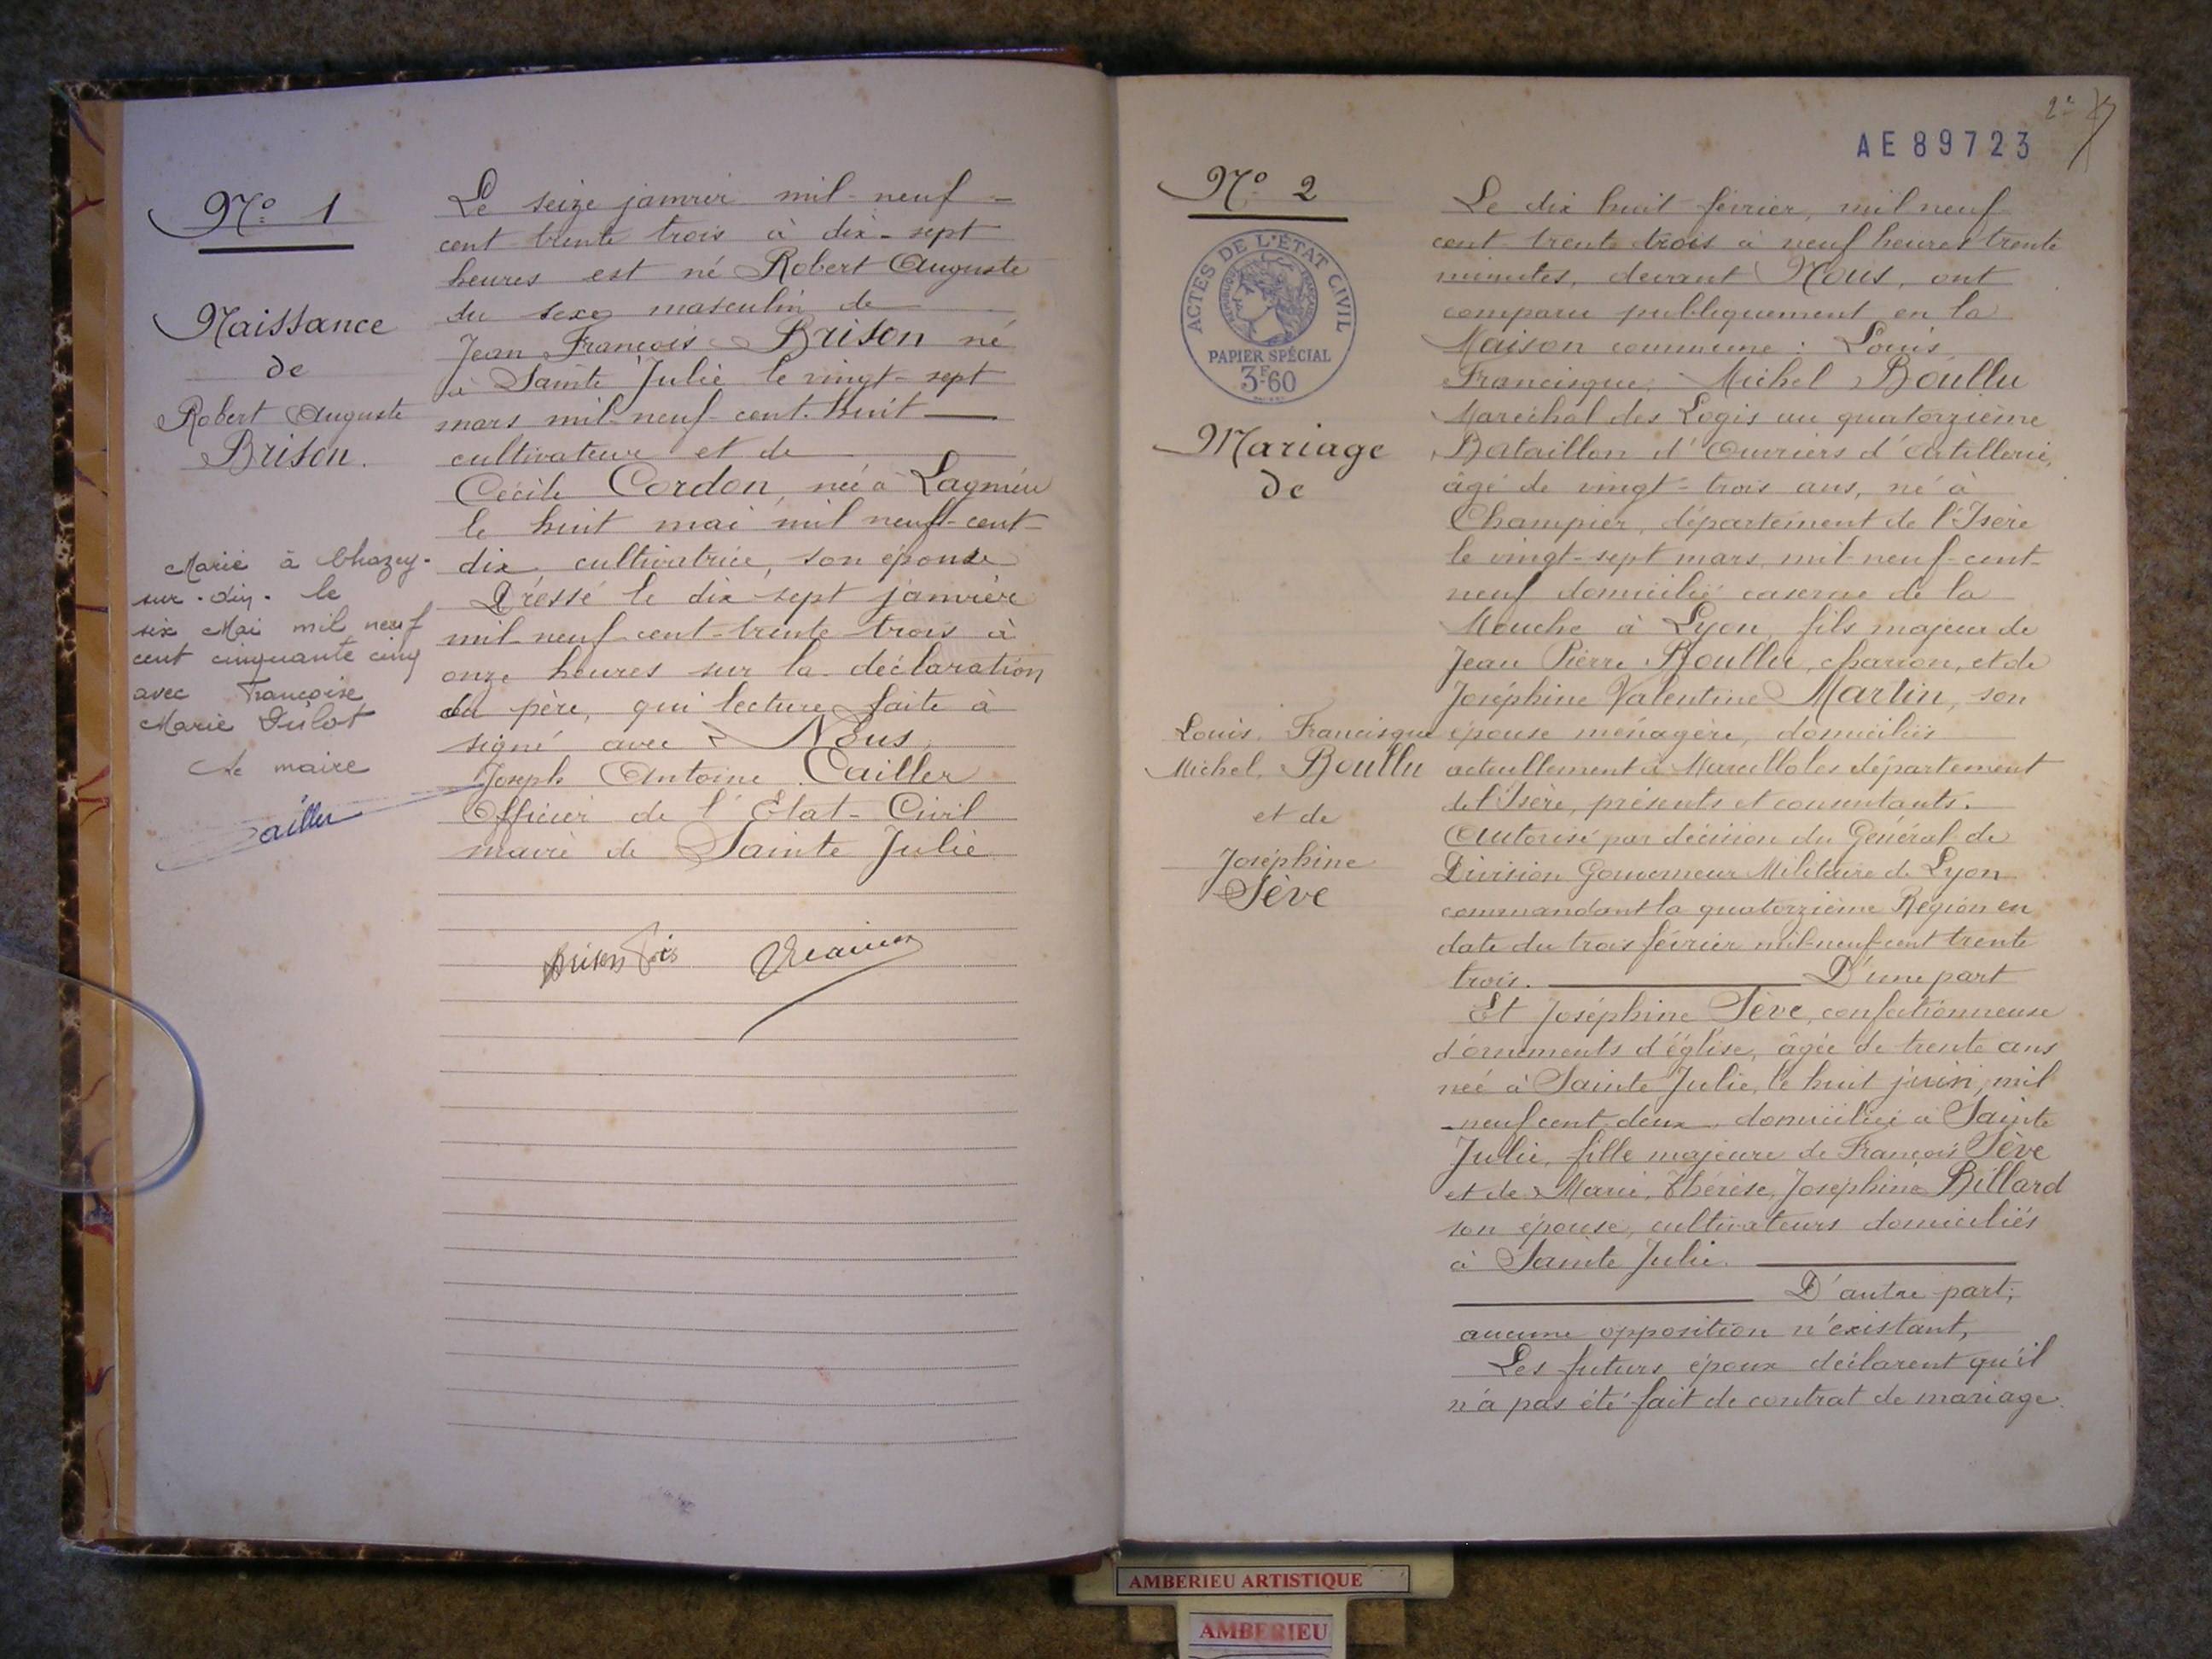 Nº 1
Naissance
de
Robert Auguste
Brison.
Marié à Chazey-
sur-Ain. le
six Mai mil neuf
cent cinquante cinq
avec Françoise
Marie Dulot
Le maire
Cailler
Le seize janvier mil-neuf-
cent-trente trois à dix-sept
heures est né Robert Auguste
du sexe masculin de
Jean François Brison né
à Sainte Julie le vingt-sept
mars mil-neuf-cent-huit
cultivateur et de
Cécile Cordon, née à Lagnieu
le huit mai mil neuf-cent-
dix cultivatrice, son épouse
Dressé le dix sept janvier
mil-neuf-cent-trente trois à
onze heures sur la déclaration
du père, qui lecture faite à
signé avec Nous,
Joseph Antoine Cailler
Officier de l'Etat-Civil
maire de Sainte Julie
Brison Fois
AE89723
2e
Nº 2
ACTES DE L'ÉTAT CIVIL
RÉPUBLIQUE FRANÇAISE
PAPIER SPÉCIAL
3F60
Mariage
de
Louis, Francisque
Michel, Boullu
et de
Joséphine
Sève
Le dix huit février, mil neuf
cent-trente trois à neuf heures trente
minutes, devant Nous, ont
comparu publiquement en la
Maison commune : Louis
Francisque, Michel Boullu
Maréchal des Logis au quatorzième
Bataillon d'Ouvriers d'Artillerie,
âgé de vingt-trois ans, né à
Champier, département de l'Isère
le vingt-sept mars, mil-neuf-cent-
neuf domicilié caserne de la
Mouche à Lyon, fils majeur de
Jean Pierre Boullu, charron, et de
Joséphine Valentine Martin, son
épouse ménagère, domiciliés
actuellement à Marcilloles département
de l'Isère, présents et consentants.
Autorisé par décision du Général de
Division Gouverneur Militaire de Lyon
commandant la quatorzième Région en
date du trois février mil-neuf-cent trente
trois. D'une part
Et Joséphine Sève, confectionneuse
d'ornements d'église, âgée de trente ans
née à Sainte Julie, le huit juin, mil
neuf cent-deux, domiciliée à Sainte
Julie, fille majeure de François Sève
et de Marie, Thérèse, Joséphine Billard
son épouse, cultivateurs domiciliés
à Sainte Julie.
D'autre part;
aucune opposition n'existant,
Les futurs époux déclarent qu'il
n'a pas été fait de contrat de mariage.
AMBERIEU ARTISTIQUE
AMBERIEU